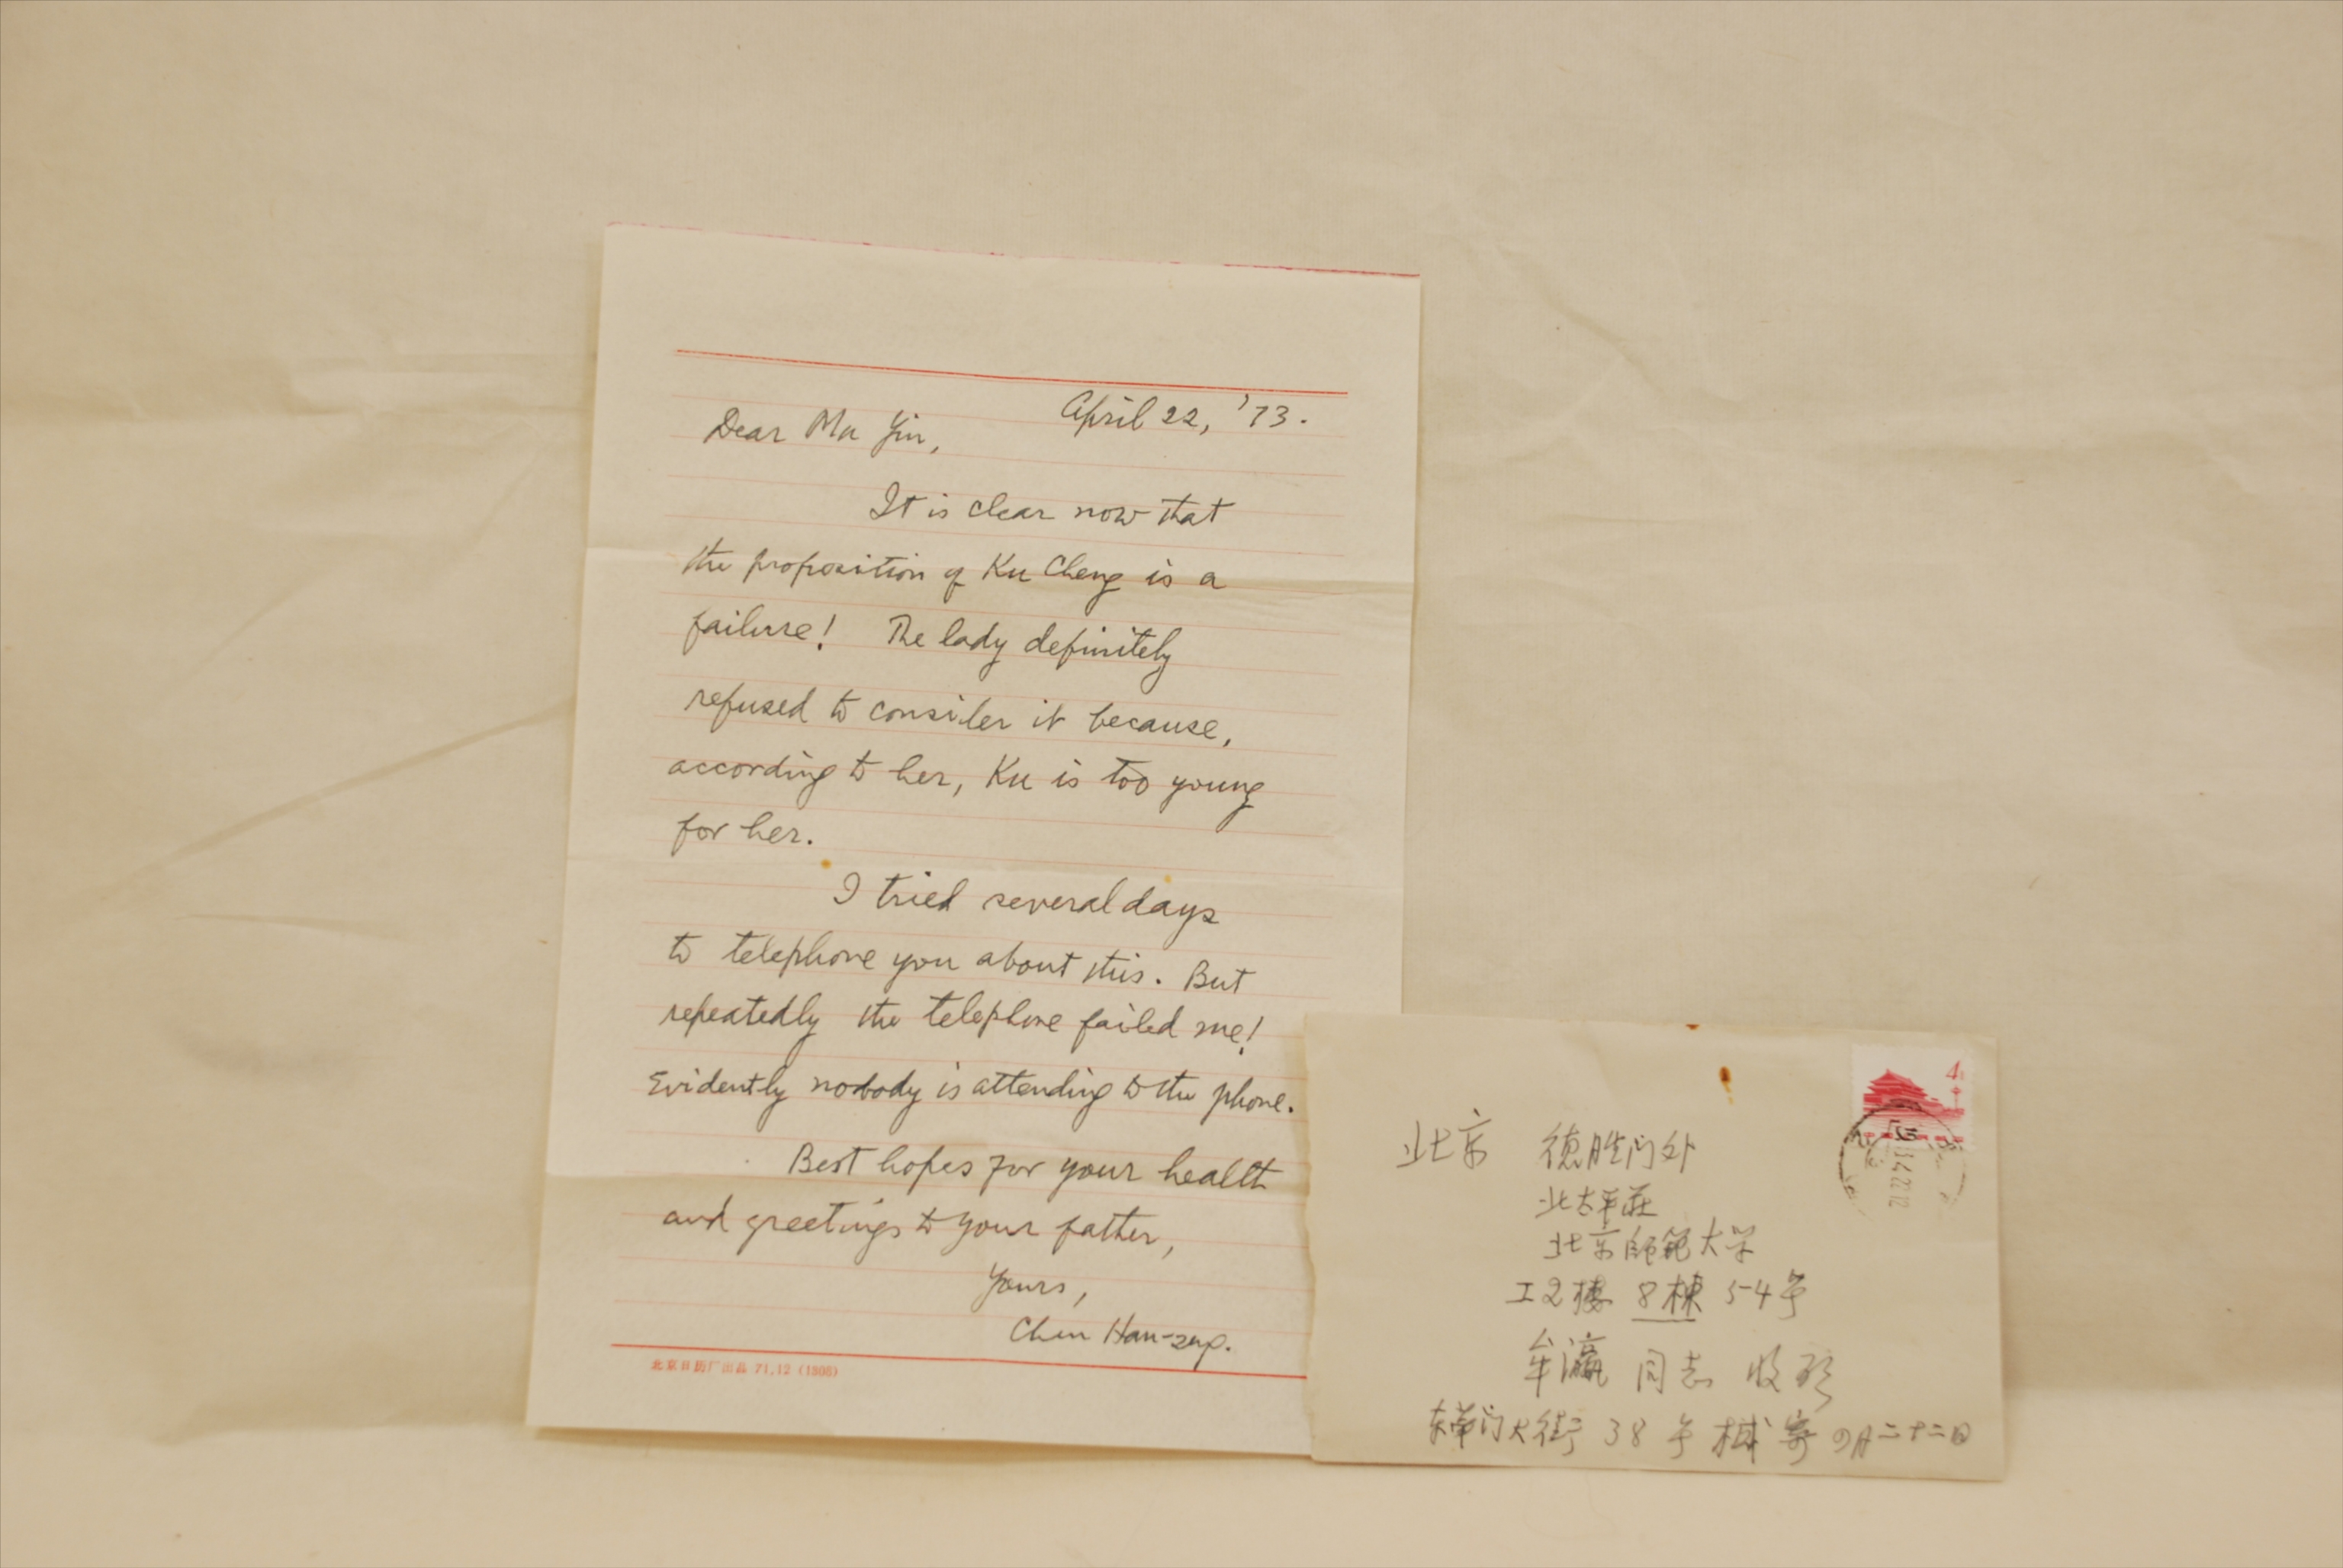 April 22, '73.
Dear Mu Yin,
It is clear now that
the proposition of Ku Cheng is a
failure! The lady definitely
refused to consider it because,
according to her, Ku is too young
for her.
I tried several days
to telephone you about this. But
repeatedly the telephone failed me!
Evidently nobody is attending to the phone.
Best hopes for your health
and greetings to your father,
Yours,
Chen Han-seng.
北京日历厂出品 71.12 (1308)
4
北京 德胜门外
北太平庄
北京师范大学
工2楼 8栋 5-4号
牟瀛 同志 收启
大街 38号 寄 四月二十二日